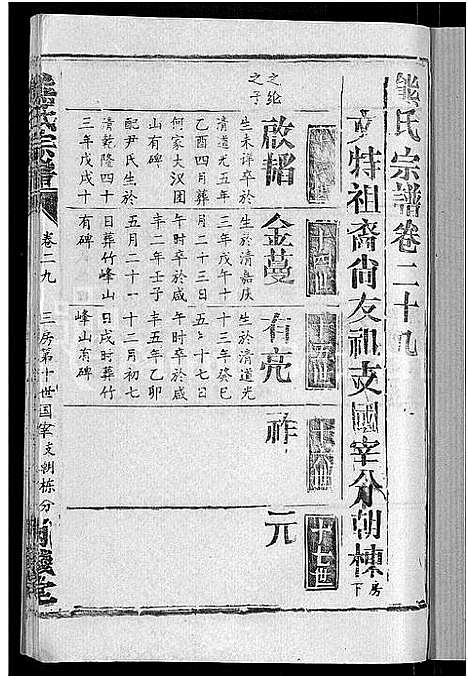 熊氏宗譜卷二十九
文特祖裔尚友祖支國宰分朝棟房下
十五世
十七世
之纶
之子
啟韜
生未詳卒於
清道光五年
乙酉四月葬
何家大汉团
山有碑
配尹氏生於
清乾隆四十
三年戊戌十
金蔓
生於清嘉庆
三年戊午十
月二十三日
午时卒於咸
丰二年壬子
五月二十一
日葬竹峰山
有碑
有亮
生於清道光
十三年癸巳
五月十七日
午时卒於咸
丰五年乙卯
十二月初七
日戌时葬竹
峰山有碑
祚
元
熊氏宗譜
卷二九
三房第十世国宰支朝栋分